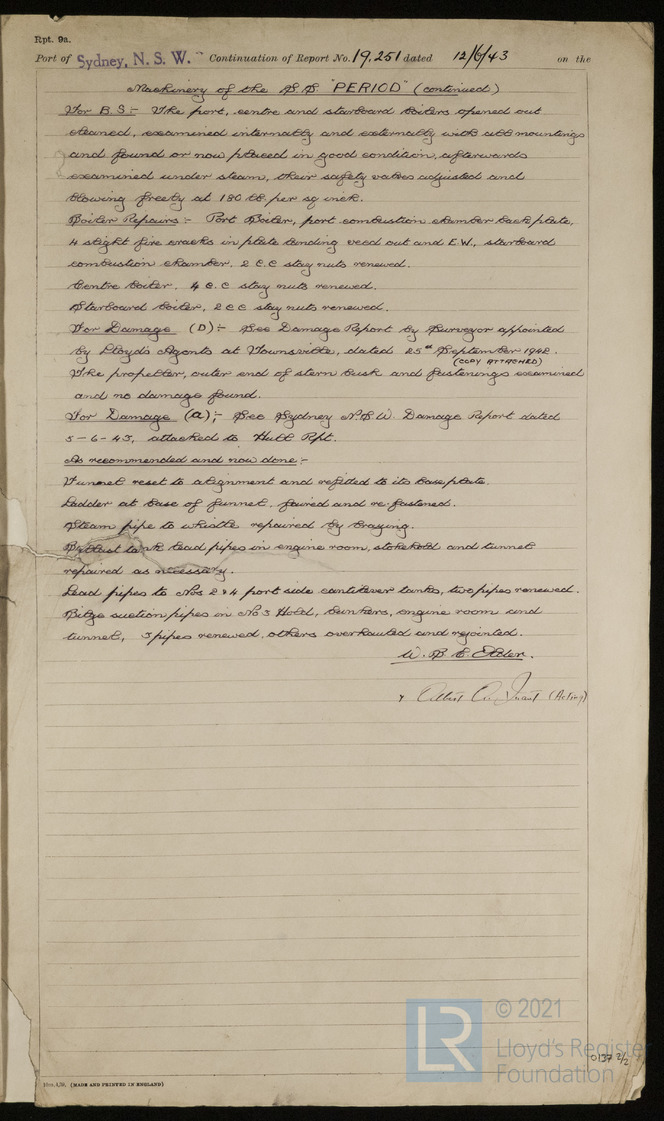 Rpt. 9a.
Port of Sydney, N. S. W. Continuation of Report No. 19,251 dated 12/6/43 on the
Machinery of the S.S "PERIOD" (continued)
For B.S:- The port, centre and starboard boilers opened out
cleaned, examined internally and externally with all mountings
and found or now placed in good condition, afterwards
examined under steam, their safety valves adjusted and
blowing freely at 180 lb. per sq inch.
Boiler Repairs:- Port Boiler, port combustion chamber back plate,
4 slight fire cracks in plate landing veed out and E.W., starboard
combustion chamber. 2 C.C stay nuts renewed.
Centre boiler. 4 C.C stay nuts renewed.
Starboard boiler, 2 CC stay nuts renewed.
For Damage (D):- See Damage Report by Surveyor appointed
by Lloyds Agents at Townsville, dated 25th September 1942.
(COPY ATTACHED)
The propeller, outer end of stern bush and fastenings examined
and no damage found.
For Damage (a);- See Sydney N.S.W. Damage Report dated
5-6-43, attached to Hull Rpt.
As recommended and now done:-
Funnel reset to alignment and refitted to its baseplate.
Ladder at base of funnel, faired and re-fastened.
Steam pipe to whistle repaired by brazing.
Ballast tank lead pipes in engine room, stokehold and tunnel
repaired as necessary.
Lead pipes to Nos 2 & 4 port side cantilever tanks, two pipes renewed.
Bilge suction pipes in No 3 Hold, bunkers, engine room and
tunnel, 3 pipes renewed, others overhauled and rejointed.
W. B. (Acting)
(MADE AND PRINTED IN ENGLAND)
LR
© 2021
Lloyd's Register
Foundation
0137 2/2